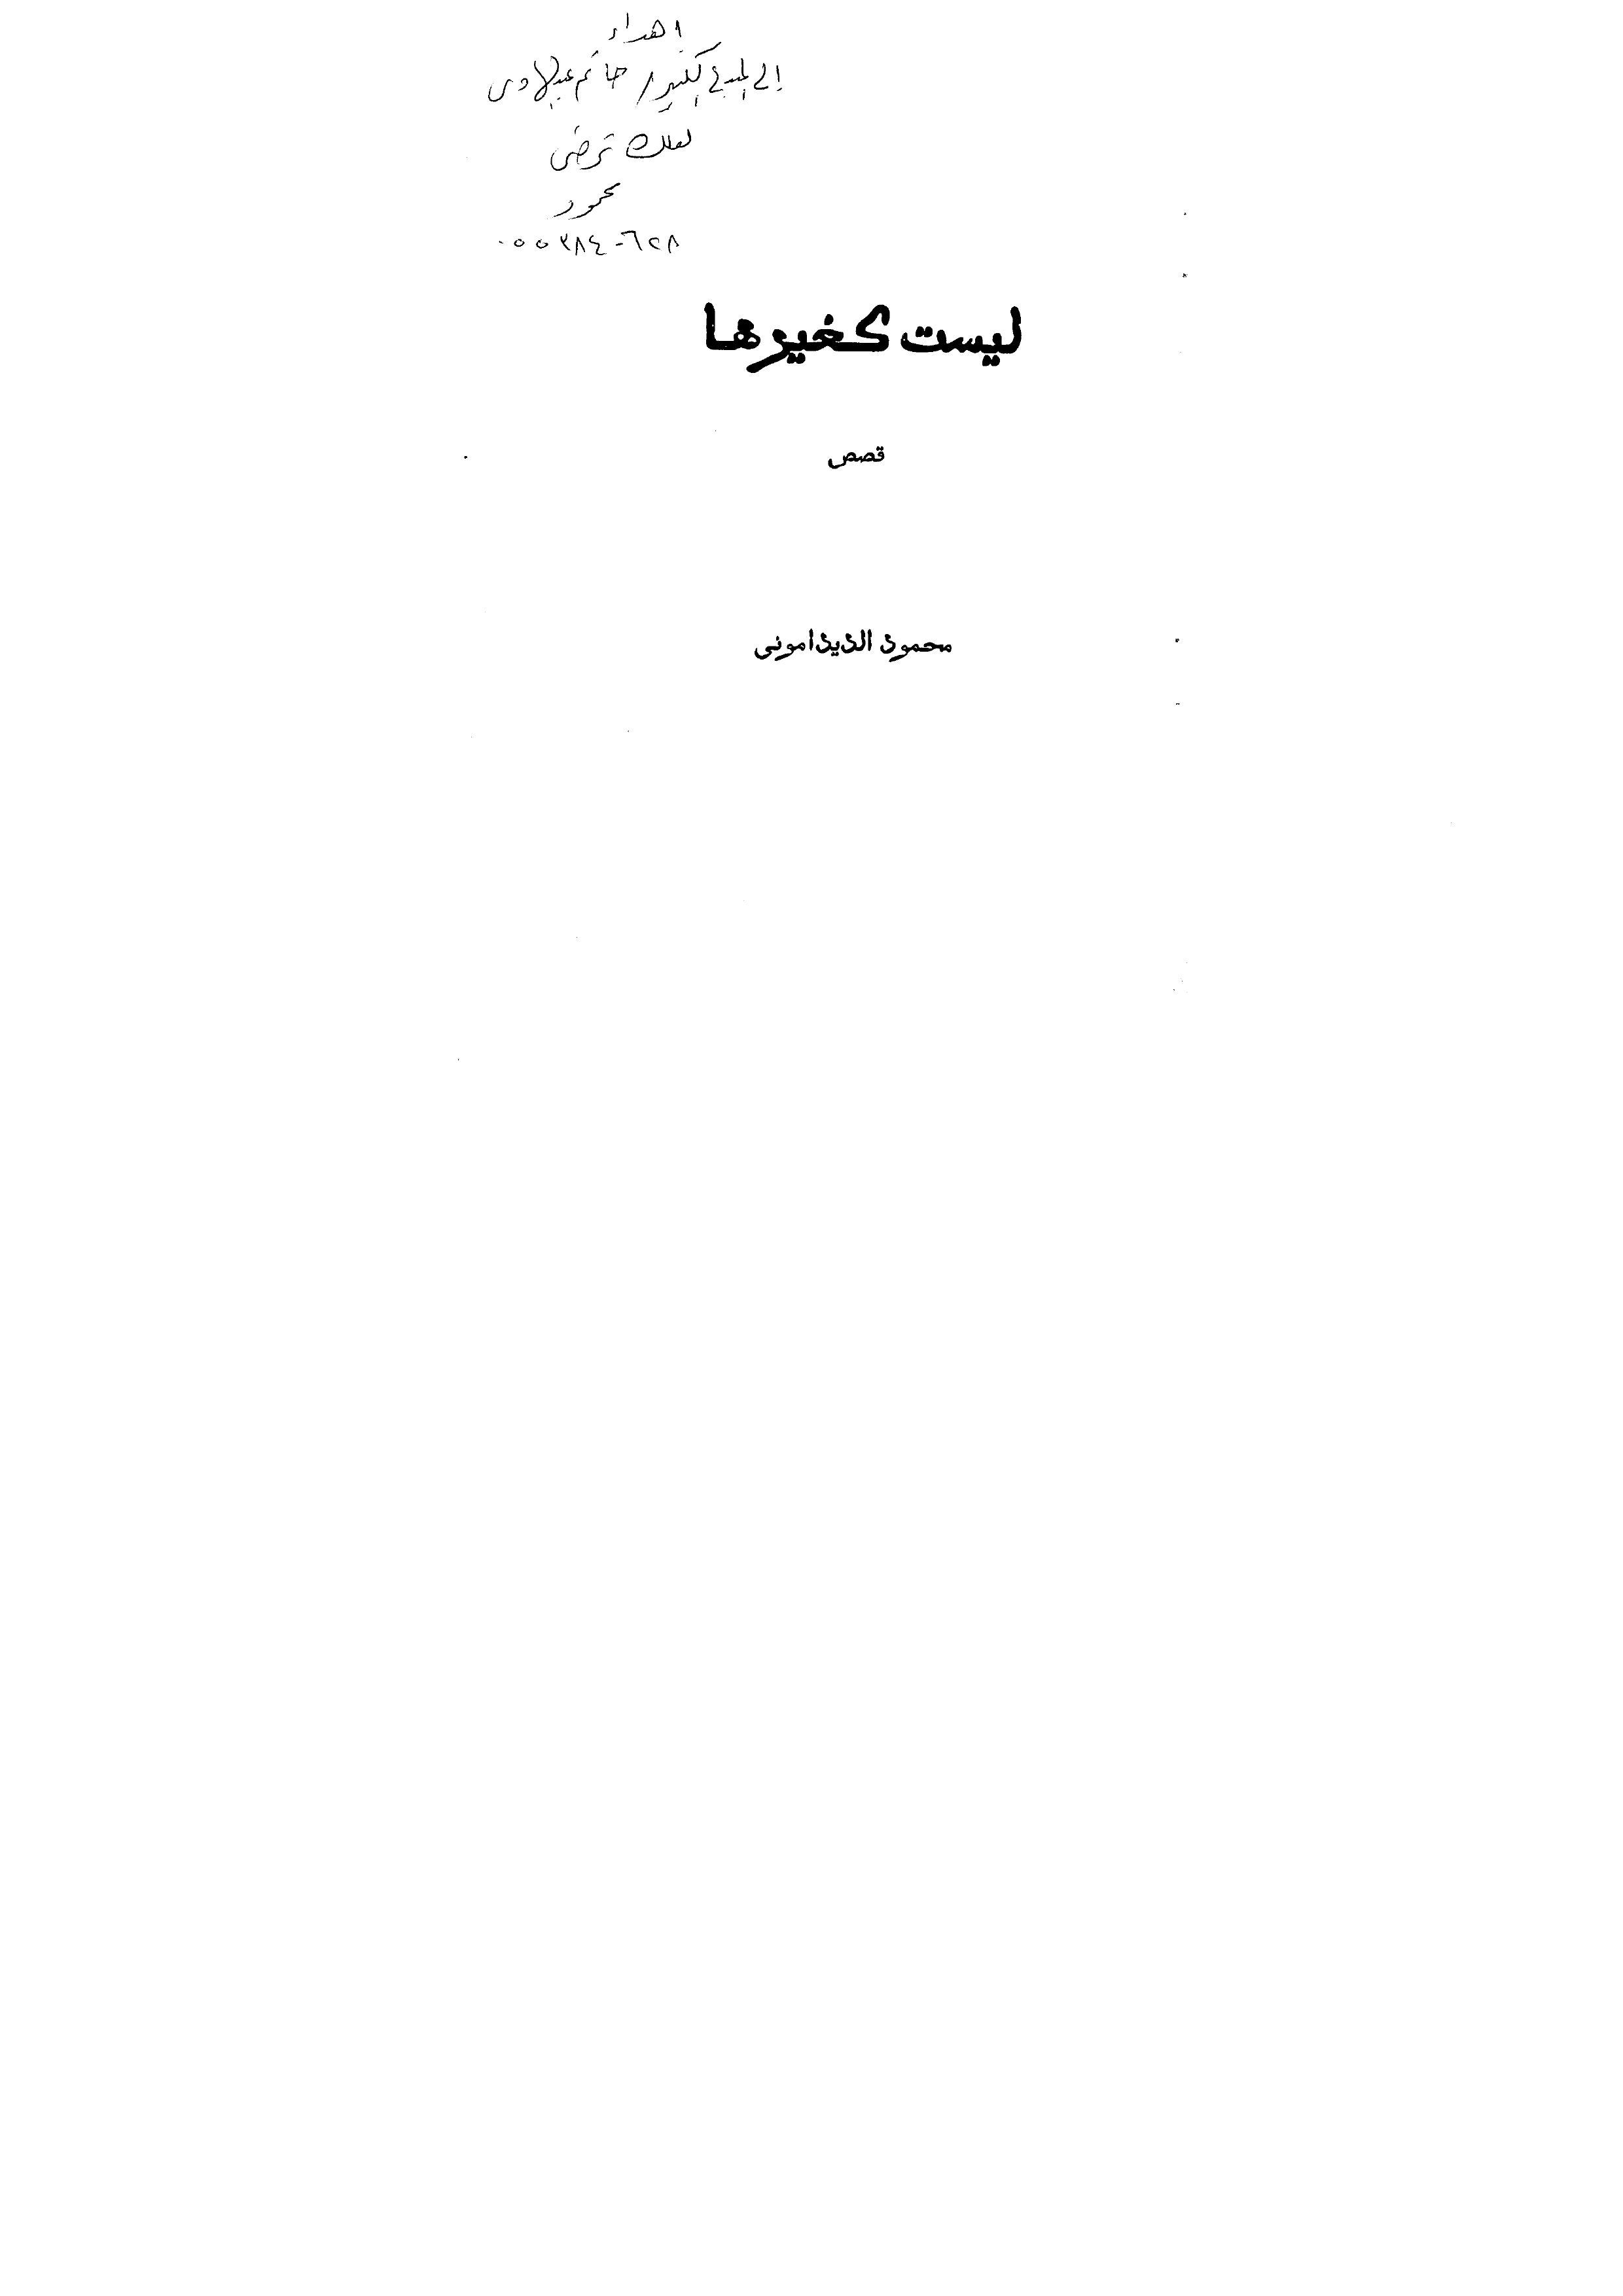 اهداء
إلى المبدع الكبير / حاتم عبد الهادى
لعلك ترضى
محمود
ليست كغيرها
قصص
محمود الديدامونى